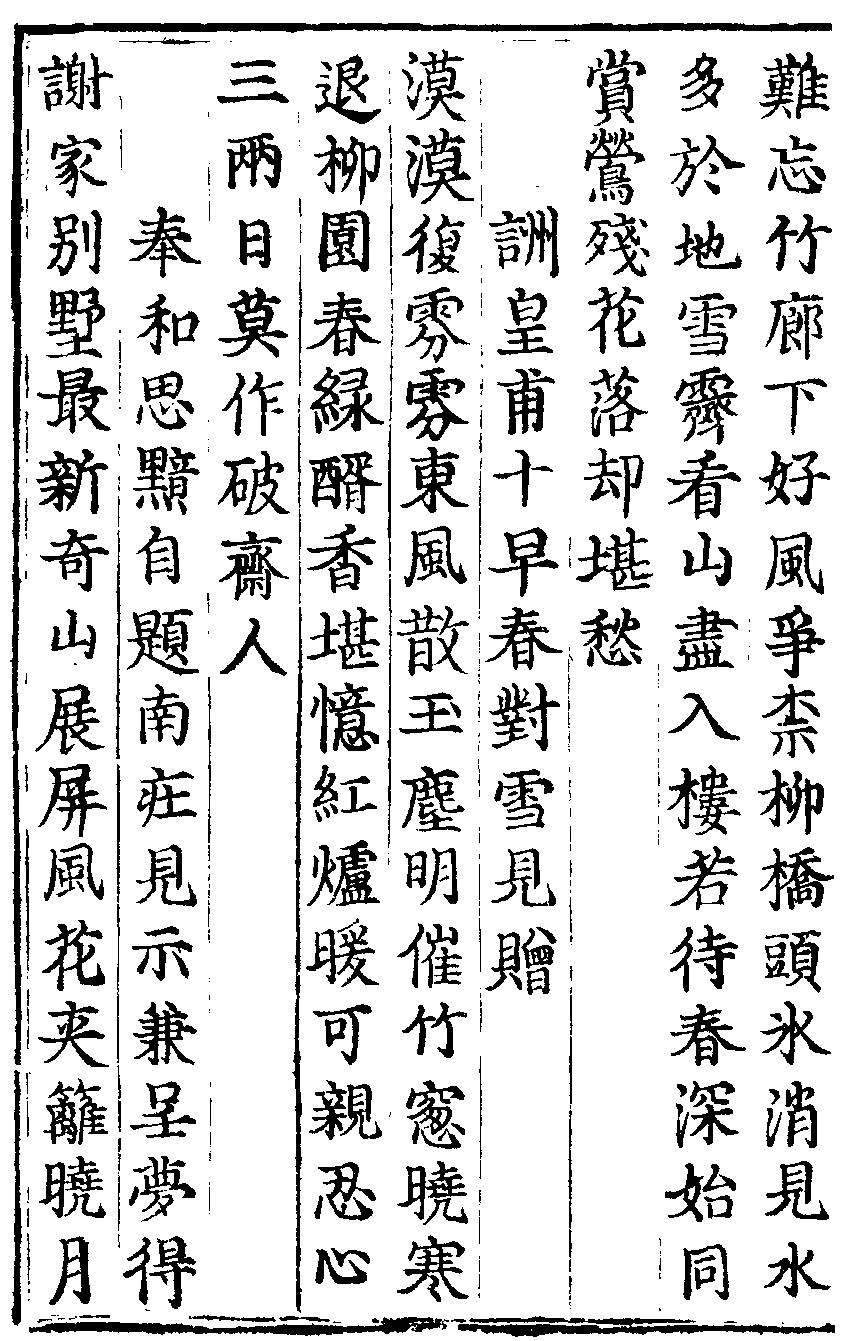 難忘竹廊下好風爭柰柳橋頭氷消見水
多於地雪霽看山盡入樓若待春深始同
賞鶯殘花落却堪愁
詶皇甫十早春對雪見贈
漠漠復雰雰東風散玉塵明催竹窓曉寒
退柳園春緑醑香堪憶紅爐暖可親忍心
三兩日莫作破齋人
奉和思黯自題南庄見示兼呈夢得
謝家别墅最新奇山展屏風花夾籬曉月